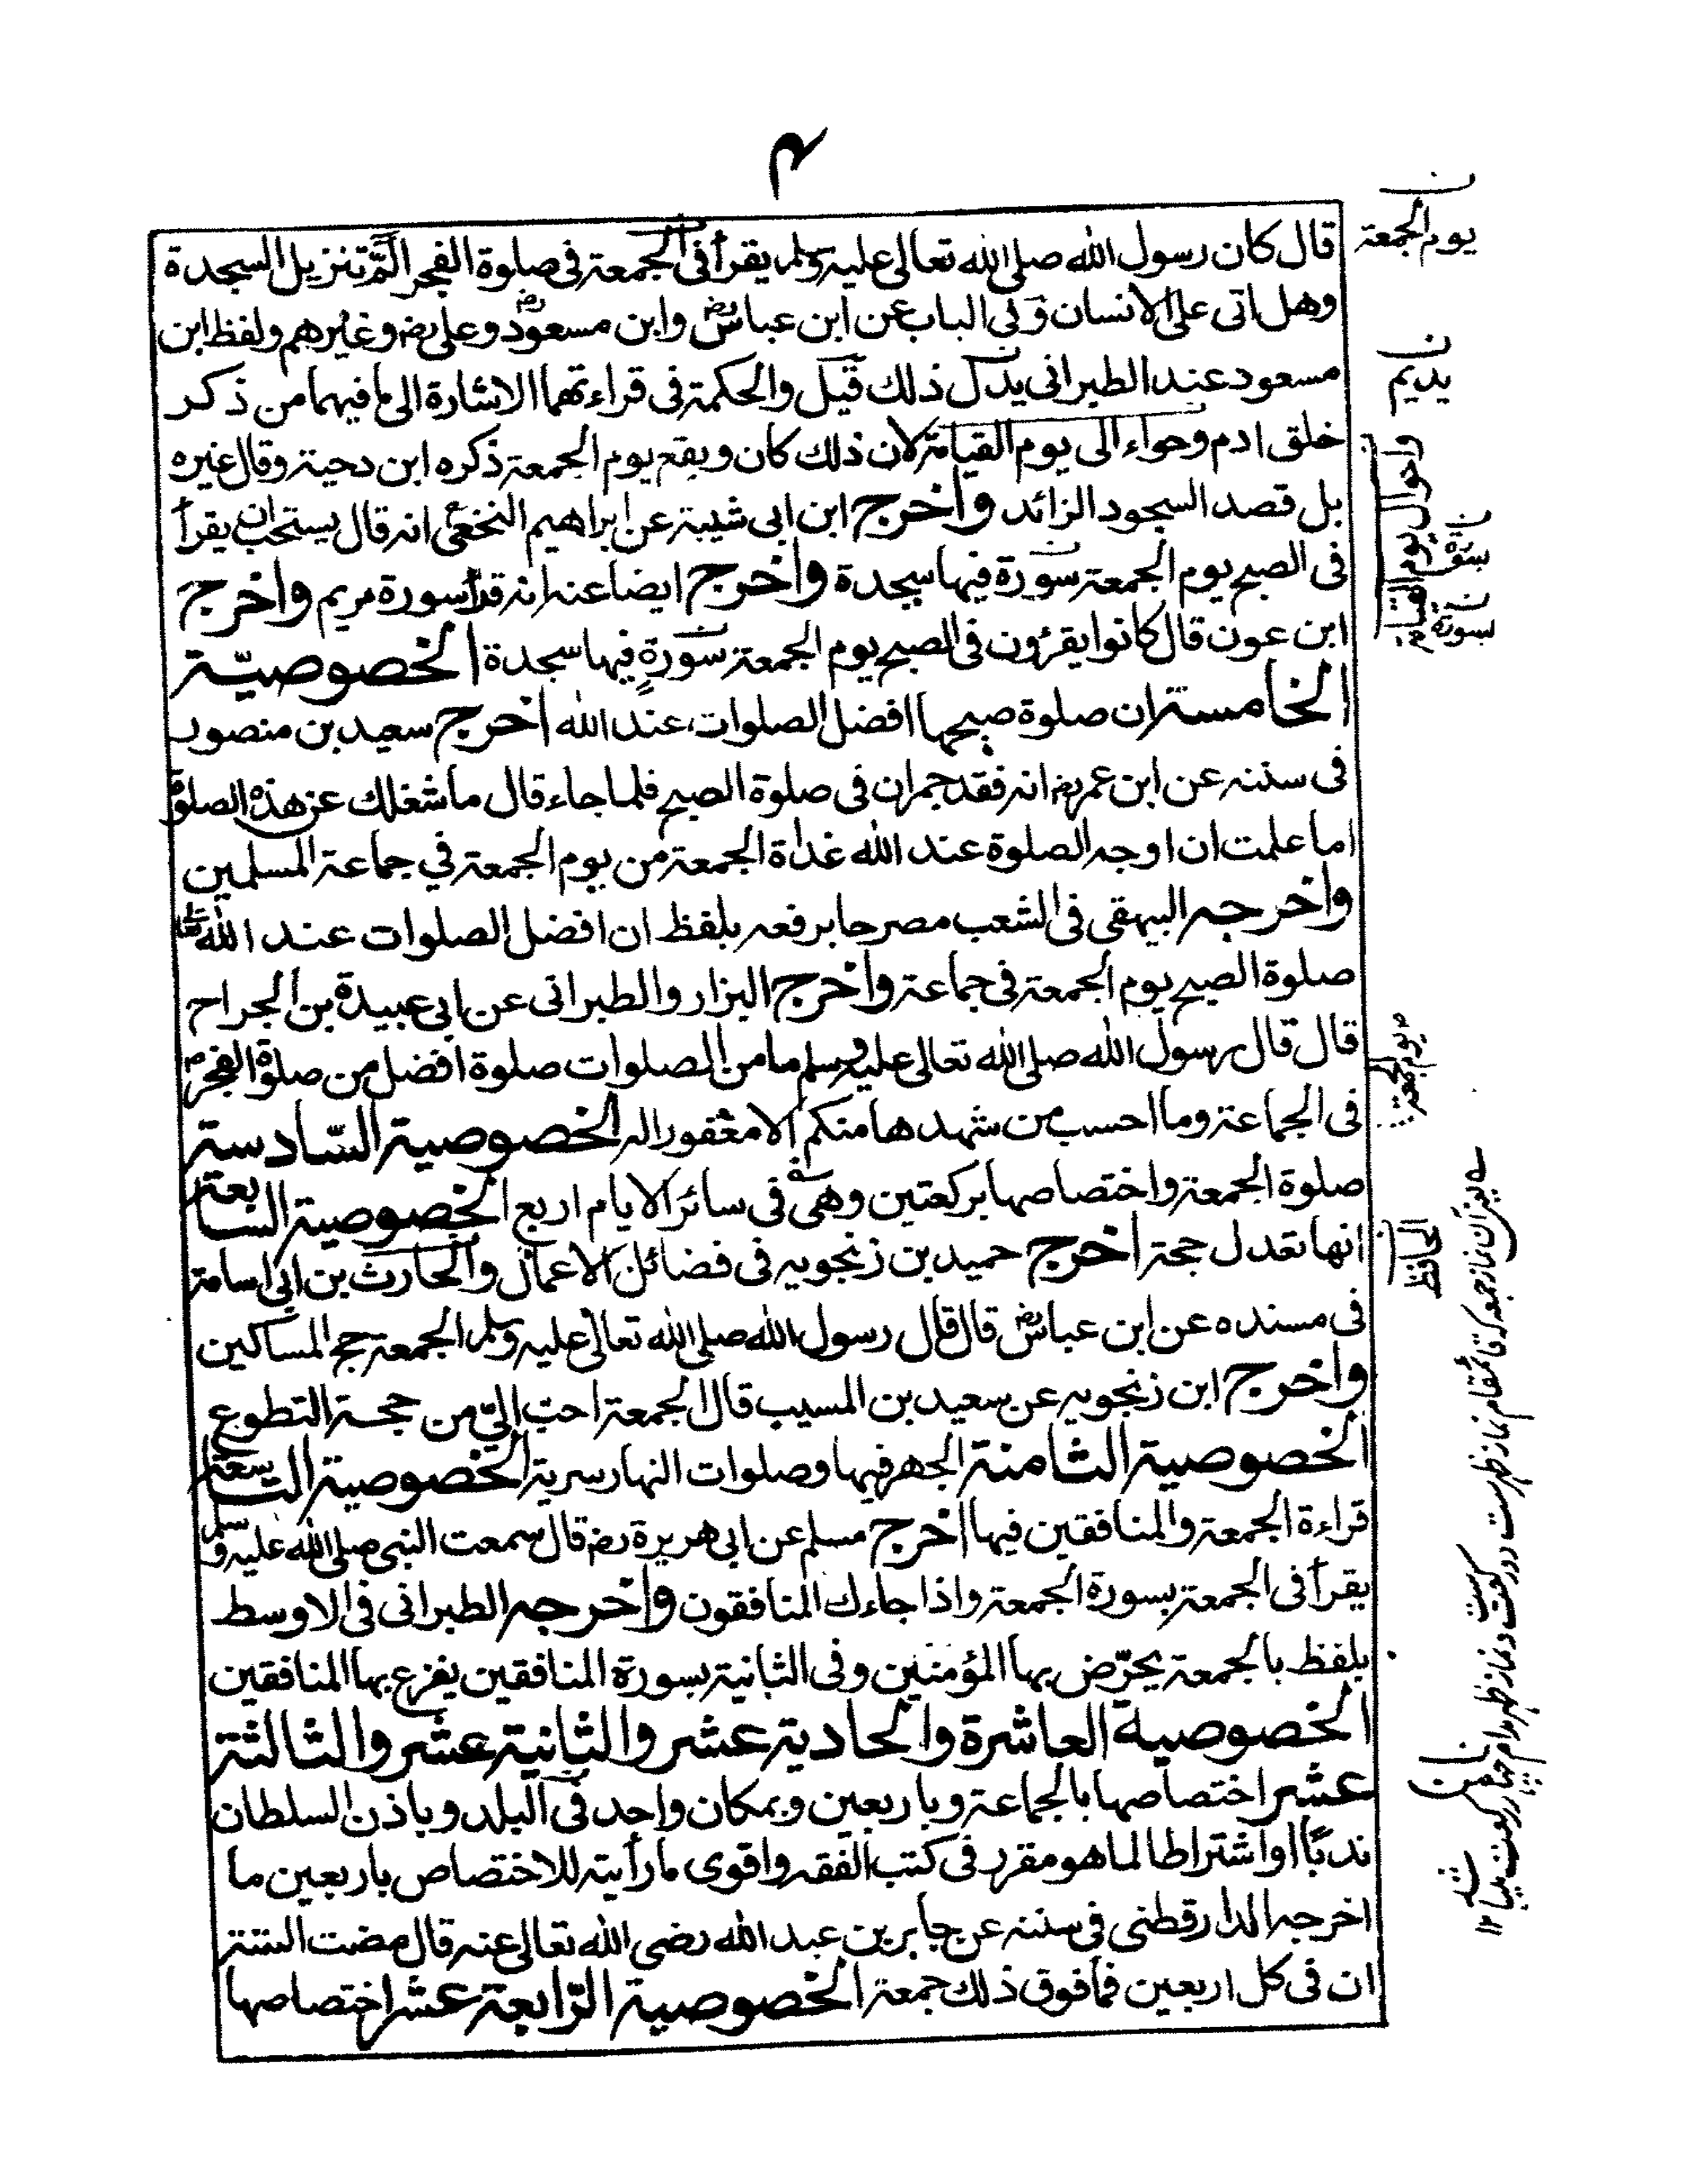 ۴
قال كان رسول الله صلى الله تعالى عليه وسلم يقرأ فى الجمعة فى صلوة الفجر الم تنزيل السجدة
وهل اتى على الانسان وفي الباب عن ابن عباس رض وابن مسعود رض وعلى رض وغيرهم ولفظ ابن
مسعود عند الطبرانى يدل ذلك قيل والحكمة فى قراءتهما الاشارة الى ما فيهما من ذكر
خلق ادم وحواء الى يوم القيامة لان ذلك كان ويقع يوم الجمعة ذكره ابن دحية وقال غيره
بل قصد السجود الزائد واخرج ابن ابى شيبة عن ابراهيم النخعى انه قال يستحب ان يقرأ
فى الصبح يوم الجمعة سورة فيها سجدة واخرج ايضا عنه انه قرأ سورة مريم واخرج
ابن عون قال كانوا يقرؤن فى الصبح يوم الجمعة سورة فيها سجدة الخصوصيّة
الخامسة ان صلوة صبحها افضل الصلوات عند الله اخرج سعيد بن منصور
فى سننه عن ابن عمر رض انه فقد حمران فى صلوة الصبح فلما جاء قال ما شغلك عن هذه الصلوة
اما علمت ان اوجه الصلوة عند الله غداة الجمعة من يوم الجمعة في جماعة المسلمين
واخرجه البيهقى فى الشعب مصرحا برفعه بلفظ ان افضل الصلوات عند الله تعالى
صلوة الصبح يوم الجمعة فى جماعة واخرج البزار والطبرانى عن ابي عبيدة بن الجراح
قال قال رسول الله صلى الله تعالى عليه وسلم ما من الصلوات صلوة افضل من صلوة الفجر
فى الجماعة وما احسب من شهدها منكم الا مغفورا له الخصوصية السّادسة
صلوة الجمعة واختصاصها بركعتين وهى فى سائر الايام اربع الخصوصية السابعة
انها تعدل حجة اخرج حميد بن زنجويه فى فضائل الاعمال والحارث بن ابى اسامة
فى مسنده عن ابن عباس رض قال قال رسول الله صلى الله تعالى عليه وسلم الجمعة حج المساكين
واخرج ابن زنجويه عن سعيد بن المسيب قال الجمعة احب الىّ من حجة التطوع
الخصوصية الثامنة الجهر فيها وصلوات النهار سرية الخصوصية التاسعة
قراءة الجمعة والمنافقين فيها اخرج مسلم عن ابى هريرة رض قال سمعت النبى صلى الله عليه وسلم
يقرأ فى الجمعة بسورة الجمعة واذا جاءك المنافقون واخرجه الطبرانى فى الاوسط
بلفظ بالجمعة يحرّض بها المؤمنين وفى الثانية بسورة المنافقين يفزع بها المنافقين
الخصوصية العاشرة والحادية عشر والثانية عشر والثالثة
عشر اختصاصها بالجماعة وباربعين وبمكان واحد فى البلد وباذن السلطان
ندبًا او اشتراطا لما هو مقرر فى كتب الفقه واقوى ما رأيته للاختصاص باربعين ما
اخرجه الدارقطنى فى سننه عن جابر بن عبد الله رضى الله تعالى عنه قال مضت السنة
ان فى كل اربعين فما فوق ذلك جمعة الخصوصية الرّابعة عشر اختصاصها
ن
يوم الجمعة
ن
يديم
واحوال يوم القيامة
ن
بسورة
ن
بسورة
يوم الجمعة
الحافظ